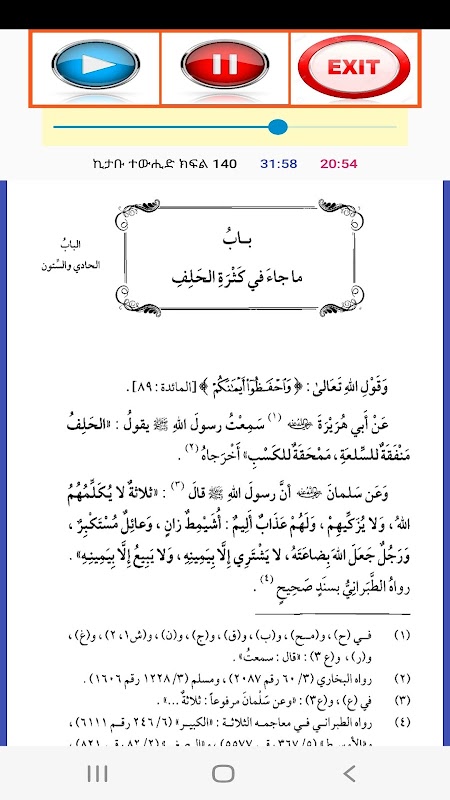 EXIT
ኪታቡ ተውሒድ ክፍል 140 31:58 20:54
بابُ
ما جاءَ في كَثْرَةِ الحَلِفِ
البابُ
الحادي والسِّتون
وَقَوْلِ اللهِ تَعَالىٰ : ﴿ وَٱحْفَظُوٓا۟ أَيْمَـٰنَكُمْ ﴾ [المائدة : ٨٩] .
عَنْ أَبي هُرَيْرَةَ رضي الله عنه (١) سَمِعْتُ رسولَ اللهِ ﷺ يقولُ : «الحَلِفُ
مَنْفَقَةٌ للسِّلعَةِ، مَمْحَقَةٌ للكَسْبِ» أَخْرَجاهُ (٢) .
وَعَن سَلمانَ رضي الله عنه أنَّ رسولَ اللهِ ﷺ قالَ (٣) : «ثلاثةٌ لا يُكَلِّمُهُمُ
اللهُ ، وَلا يُزَكِّيهِمْ ، وَلَهُمْ عَذَابٌ أَلِيمٌ : أُشَيْمِطٌ زانٍ ، وَعائِلٌ مُسْتَكْبِرٌ ،
وَرَجُلٌ جَعَلَ اللهَ بِضاعَتَهُ ، لا يَشْتَرِي إِلَّا بِيَمِينِهِ ، وَلا يَبِيعُ إِلَّا بِيَمِينِهِ» .
رواهُ الطَّبَرانِيُّ بسندٍ صَحِيحٍ (٤) .
(١) فـي (ح) ، و(مـح) ، و(ب) ، و(ق) ، و(ج) ، و(ن) ، و(ش١، ٢) ، و(غ) ،
و(ر) ، و(ع ٣) : «قال : سمعتُ» .
(٢) رواه البخاري (٣/ ٦٠ رقم ٢٠٨٧) ، ومسلم (٣/ ١٢٢٨ رقم ١٦٠٦) .
(٣) في (ع) ، و(ع٣) : «وعن سَلْمانَ مرفوعاً : ثلاثةٌ ...» .
(٤) رواه الطبراني في معاجمه الثلاثة : «الكبير» (٦/ ٢٤٦ رقم ٦١١١) ،